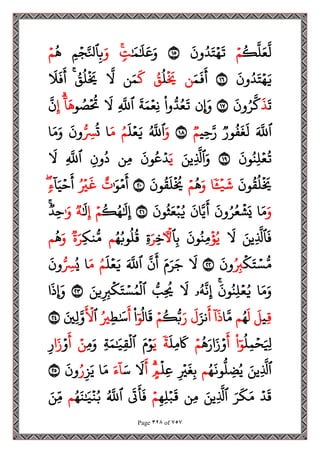 لَّعَلَّكُمْ تَهْتَدُونَ ١٥ وَعَلَٰمَٰتٍ ۚ وَبِٱلنَّجْمِ هُمْ
يَهْتَدُونَ ١٦ أَفَمَن يَخْلُقُ كَمَن لَّا يَخْلُقُ ۗ أَفَلَا
تَذَكَّرُونَ ١٧ وَإِن تَعُدُّوا۟ نِعْمَةَ ٱللَّهِ لَا تُحْصُوهَا ۗ إِنَّ
ٱللَّهَ لَغَفُورٌ رَّحِيمٌ ١٨ وَٱللَّهُ يَعْلَمُ مَا تُسِرُّونَ وَمَا
تُعْلِنُونَ ١٩ وَٱلَّذِينَ يَدْعُونَ مِن دُونِ ٱللَّهِ لَا
يَخْلُقُونَ شَيْـًٔا وَهُمْ يُخْلَقُونَ ٢٠ أَمْوَٰتٌ غَيْرُ أَحْيَآءٍ ۖ
وَمَا يَشْعُرُونَ أَيَّانَ يُبْعَثُونَ ٢١ إِلَٰهُكُمْ إِلَٰهٌ وَٰحِدٌ ۚ
فَٱلَّذِينَ لَا يُؤْمِنُونَ بِٱلْءَاخِرَةِ قُلُوبُهُم مُّنكِرَةٌ وَهُم
مُّسْتَكْبِرُونَ ٢٢ لَا جَرَمَ أَنَّ ٱللَّهَ يَعْلَمُ مَا يُسِرُّونَ
وَمَا يُعْلِنُونَ ۚ إِنَّهُۥ لَا يُحِبُّ ٱلْمُسْتَكْبِرِينَ ٢٣ وَإِذَا
قِيلَ لَهُم مَّاذَا أَنزَلَ رَبُّكُمْ قَالُوا۟ أَسَٰطِيرُ ٱلْأَوَّلِينَ ٢٤
لِيَحْمِلُوا۟ أَوْزَارَهُمْ كَامِلَةً يَوْمَ ٱلْقِيَٰمَةِ وَمِنْ أَوْزَارِ
ٱلَّذِينَ يُضِلُّونَهُم بِغَيْرِ عِلْمٍ ۗ أَلَا سَآءَ مَا يَزِرُونَ ٢٥
قَدْ مَكَرَ ٱلَّذِينَ مِن قَبْلِهِمْ فَأَتَى ٱللَّهُ بُنْيَٰنَهُم مِّنَ
Page ٣٩٨ of ٧٥٧